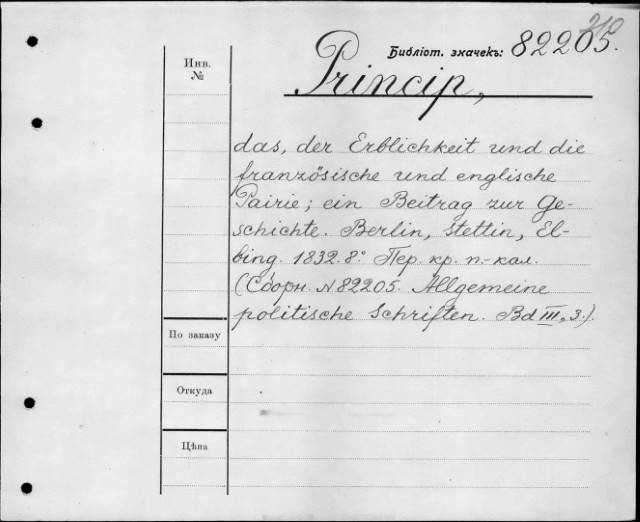 210
Библіот. значекъ: 82205.
Инв.
№
Princip,
das, der Erblichkeit und die
französische und englische
Pairie; ein Beitrag zur Ge-
schichte. Berlin, Stettin, El-
bing. 1832. 8º. Пер. кр. п.-кал.
(Сборн. № 82205. Allgemeine
politische Schriften. Bd III, 3.).
По заказу
Откуда
Цѣна